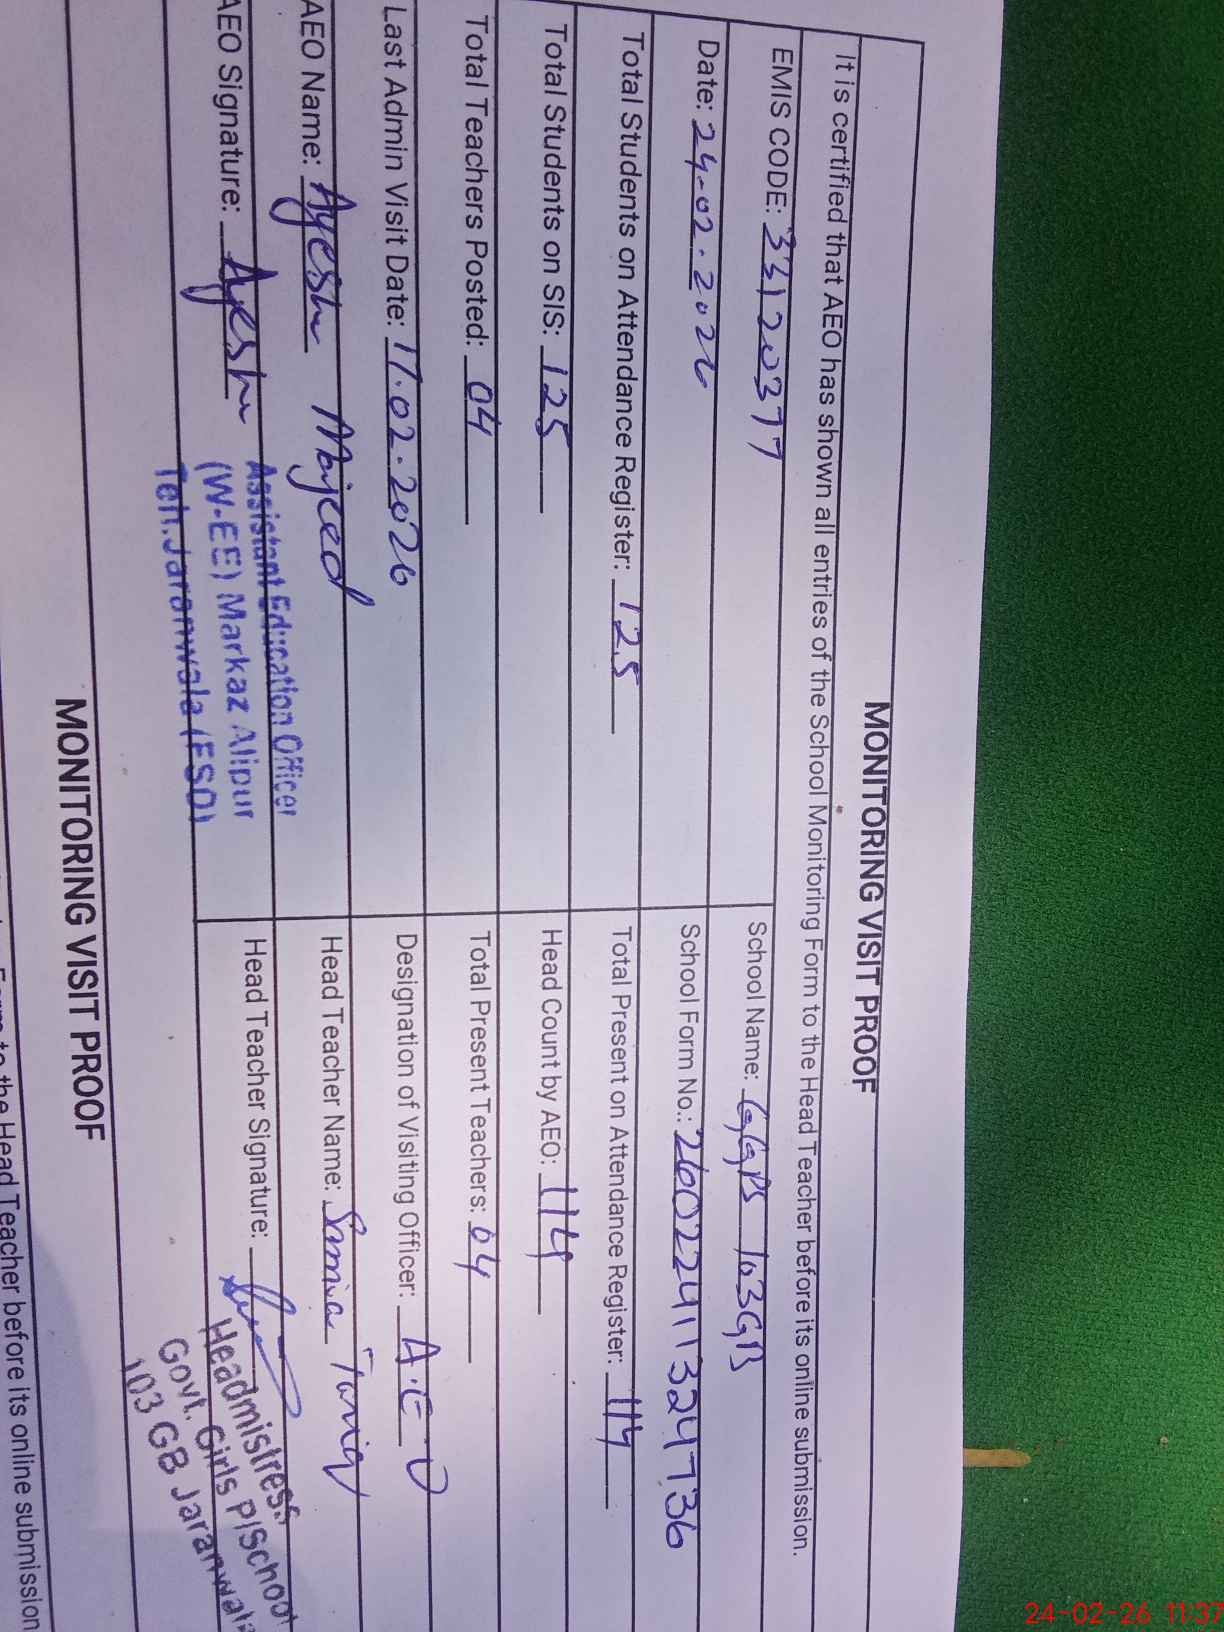 MONITORING VISIT PROOF
It is certified that AEO has shown all entries of the School Monitoring Form to the Head Teacher before its online submission.
EMIS CODE: 33120377
School Name: GGPS 103GB
Date: 24-02-2026
School Form No.: 26022411324736
Total Students on Attendance Register: 125
Total Present on Attendance Register: 114
Total Students on SIS: 125
Head Count by AEO: 114
Total Teachers Posted: 04
Total Present Teachers: 04
Last Admin Visit Date: 17.02.2026
Designation of Visiting Officer: A.E.O
AEO Name: Ayesha Majeed
Head Teacher Name: Samia Tariq
AEO Signature: Ayesha
Assistant Education Officer
(W-EE) Markaz Alipur
Teh.Jaranwala (FSD)
Head Teacher Signature:
Headmistress
Govt. Girls P/School
103 GB Jaranwala
MONITORING VISIT PROOF
Form to the Head Teacher before its online submission
24-02-26 11:37